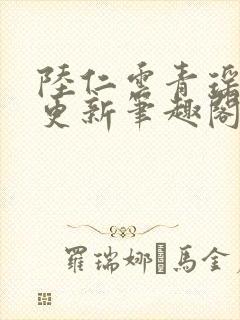 陸仁雲青瑶
更新筆趣閣
羅瑞娜·馬金